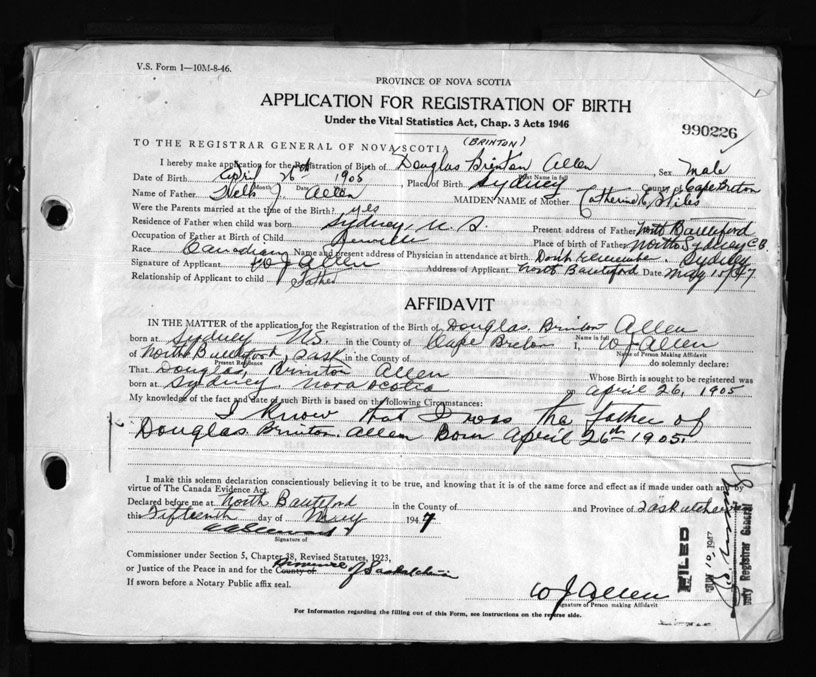 V.S. Form 1—10M-8-46.
PROVINCE OF NOVA SCOTIA
APPLICATION FOR REGISTRATION OF BIRTH
Under the Vital Statistics Act, Chap. 3 Acts 1946
990226
(BRINTON)
TO THE REGISTRAR GENERAL OF NOVA SCOTIA
I hereby make application for the Registration of Birth of Douglas Brinton Allen Sex Male
First Name in full
Date of Birth April 26th 1905, Place of Birth Sydney County of Cape Breton
Month Date
Name of Father J. Allen MAIDEN NAME of Mother Catherine Stiles
Were the Parents married at the time of the Birth? yes
Residence of Father when child was born Sydney, N. S. Present address of Father North Batteford
Occupation of Father at Birth of Child Place of birth of Father North Sydney C.B.
Race Canadian Name and present address of Physician in attendance at birth Don't remember. Sydney
Signature of Applicant W J Allen Address of Applicant North Batteford Date May 15/47
Relationship of Applicant to child Father
AFFIDAVIT
IN THE MATTER of the application for the Registration of the Birth of Douglas Brinton Allen
Name in full
born at Sydney NS. in the County of Cape Breton I, W J Allen
Name of Person Making Affidavit
of North Batteford, Sask in the County of do solemnly declare:
Present Residence
That Douglas Brinton Allen Whose Birth is sought to be registered was
born at Sydney Nova Scotia April 26, 1905
My knowledge of the fact and date of such Birth is based on the following Circumstances:
I know that I was the father of
Douglas Brinton Allen Born April 26th 1905.
I make this solemn declaration conscientiously believing it to be true, and knowing that it is of the same force and effect as if made under oath and by
virtue of The Canada Evidence Act.
Declared before me at North Batteford in the County of and Province of Saskatchewan
this Fifteenth day of May 1947
Signature of
Commissioner under Section 5, Chapter 38, Revised Statutes, 1923,
or Justice of the Peace in and for the County of Province of Saskatchewan
If sworn before a Notary Public affix seal.
W J Allen
Signature of Person making Affidavit
For Information regarding the filling out of this Form, see instructions on the reverse side.
FILED
JUN 10 1947
Deputy Registrar General